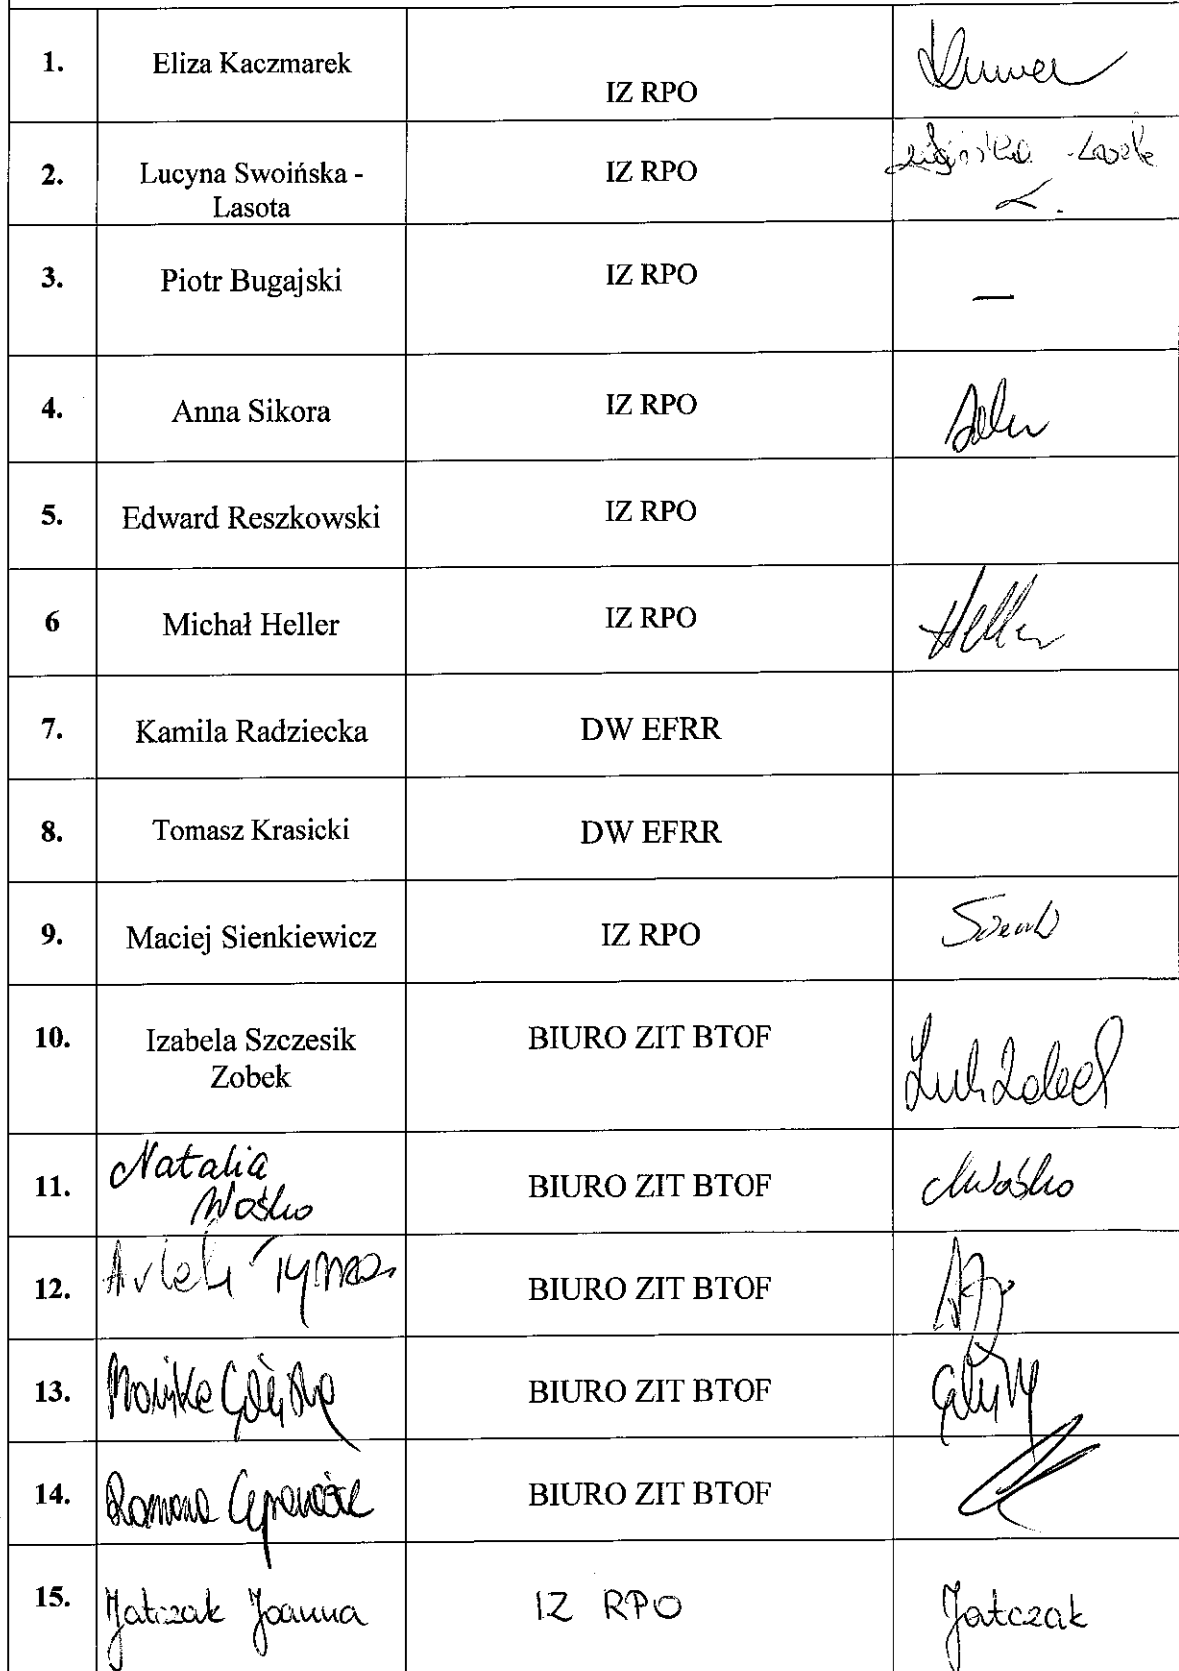 1. Eliza Kaczmarek IZ RPO
2. Lucyna Swoińska - IZ RPO
Lasota
3. Piotr Bugajski IZ RPO —
4. Anna Sikora IZ RPO
5. Edward Reszkowski IZ RPO
6 Michał Heller IZ RPO Heller
7. Kamila Radziecka DW EFRR
8. Tomasz Krasicki DW EFRR
9. Maciej Sienkiewicz IZ RPO
10. Izabela Szczesik BIURO ZIT BTOF
Zobek
11. Natalia BIURO ZIT BTOF
Waśko
12. BIURO ZIT BTOF
13. BIURO ZIT BTOF
14. BIURO ZIT BTOF
15. Jatczak Joanna IZ RPO Jatczak